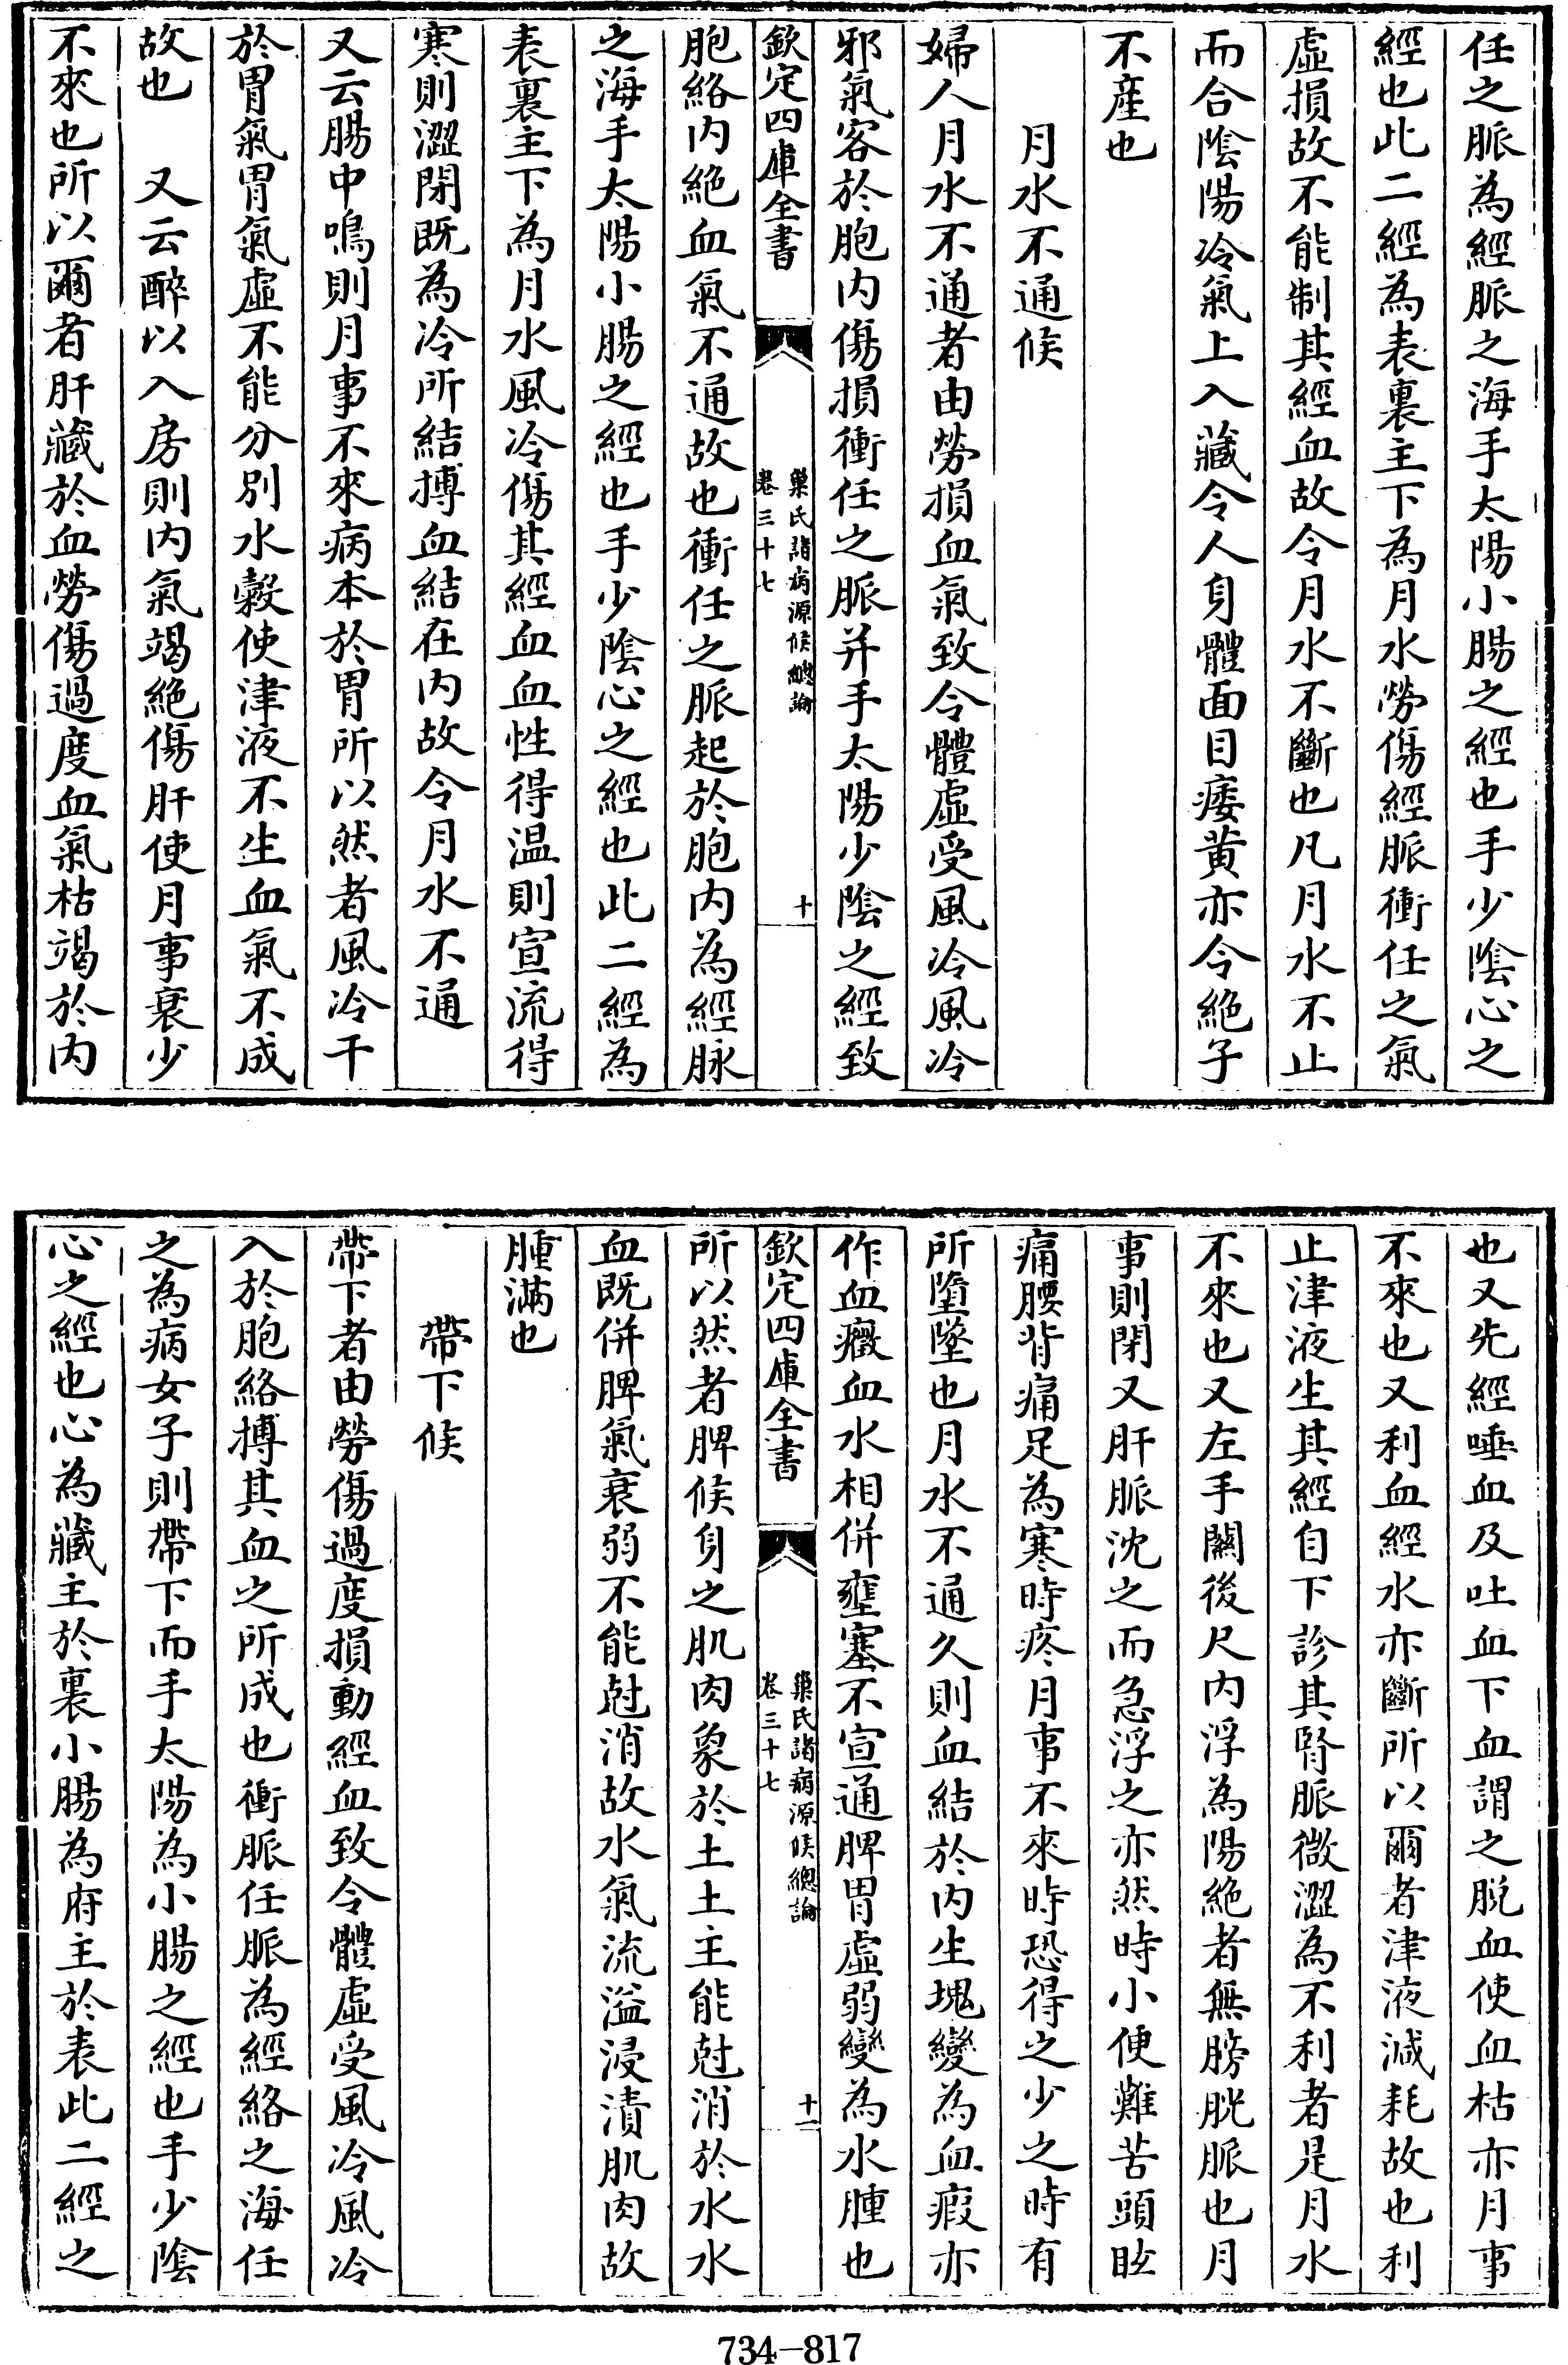 任之脈為經脈之海手太陽小腸之經也手少陰心之
經也此二經為表裏主下為月水勞傷經脈衝任之氣
虛損故不能制其經血故令月水不斷也凡月水不止
而合陰陽冷氣上入藏令人身體面目痿黄亦令絶子
不産也
月水不通候
婦人月水不通者由勞損血氣致令體虛受風冷風冷
邪氣客於胞内傷損衝任之脈并手太陽少陰之經致
欽定四庫全書
巢氏諸病源候總論
卷三十七
十
胞絡内絶血氣不通故也衝任之脈起於胞内為經脉
之海手太陽小腸之經也手少陰心之經也此二經為
表裏主下為月水風冷傷其經血血性得温則宣流得
寒則澀閉既為冷所結搏血結在内故令月水不通
又云腸中鳴則月事不來病本於胃所以然者風冷干
於胃氣胃氣虛不能分别水穀使津液不生血氣不成
故也　又云醉以入房則内氣竭絶傷肝使月事衰少
不來也所以爾者肝藏於血勞傷過度血氣枯竭於内
也又先經唾血及吐血下血謂之脱血使血枯亦月事
不來也又利血經水亦斷所以爾者津液減耗故也利
止津液生其經自下診其腎脈微澀為不利者是月水
不來也又左手關後尺内浮為陽絶者無膀胱脈也月
事則閉又肝脈沈之而急浮之亦然時小便難苦頭眩
痛腰背痛足為寒時疼月事不來時恐得之少之時有
所墮墜也月水不通久則血結於内生塊變為血瘕亦
作血癥血水相併壅塞不宣通脾胃虛弱變為水腫也
欽定四庫全書
巢氏諸病源候總論
卷三十七
十一
所以然者脾候身之肌肉象於土土主能尅消於水水
血既併脾氣衰弱不能尅消故水氣流溢浸漬肌肉故
腫滿也
帶下候
帶下者由勞傷過度損動經血致令體虛受風冷風冷
入於胞絡搏其血之所成也衝脈任脈為經絡之海任
之為病女子則帶下而手太陽為小腸之經也手少陰
心之經也心為藏主於裏小腸為府主於表此二經之
734-817